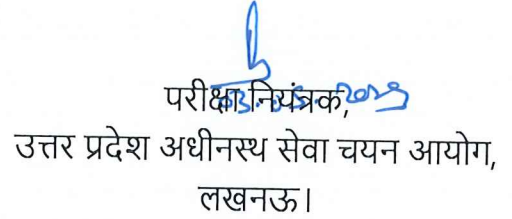 परीक्षा नियंत्रक,
उत्तर प्रदेश अधीनस्थ सेवा चयन आयोग,
लखनऊ।